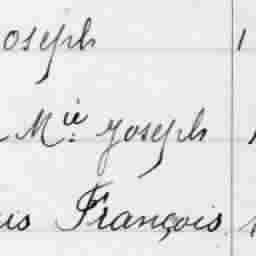 oseph 1
Mie Joseph
us François